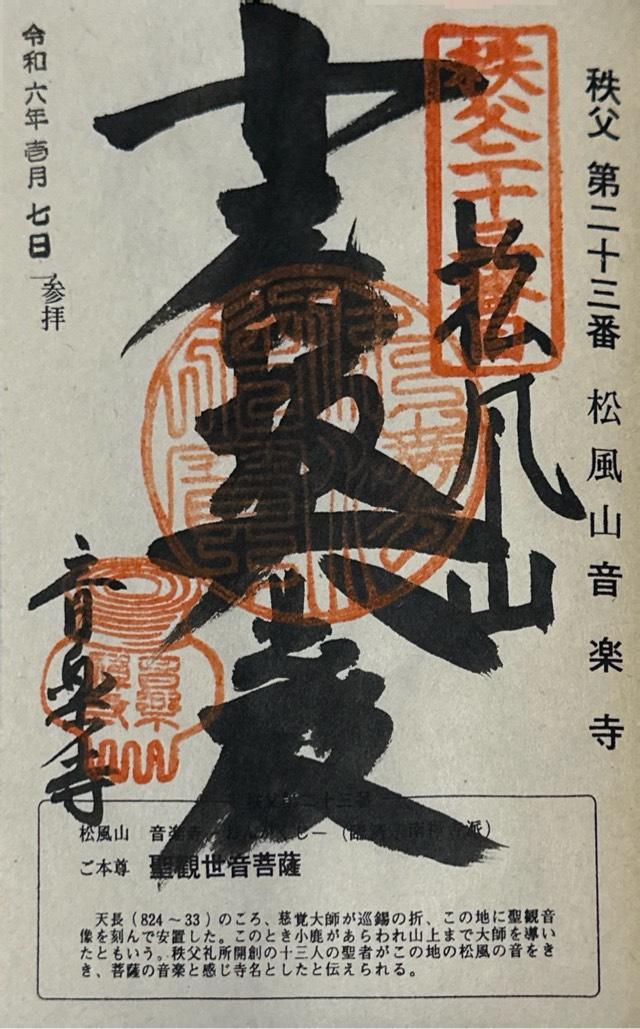 秩父 第二十三番 松風山音楽寺
秩父二十三番
松風山
音楽寺
令和六年壱月七日 参拝
秩父第二十三番
松風山 音楽寺 －おんがくじ－（臨済宗南禅寺派）
ご本尊 聖観世音菩薩
天長（824～33）のころ、慈覚大師が巡錫の折、この地に聖観音
像を刻んで安置した。このとき小鹿があらわれ山上まで大師を導い
たともいう。秩父札所開創の十三人の聖者がこの地の松風の音をき
き、菩薩の音楽と感じ寺名としたと伝えられる。